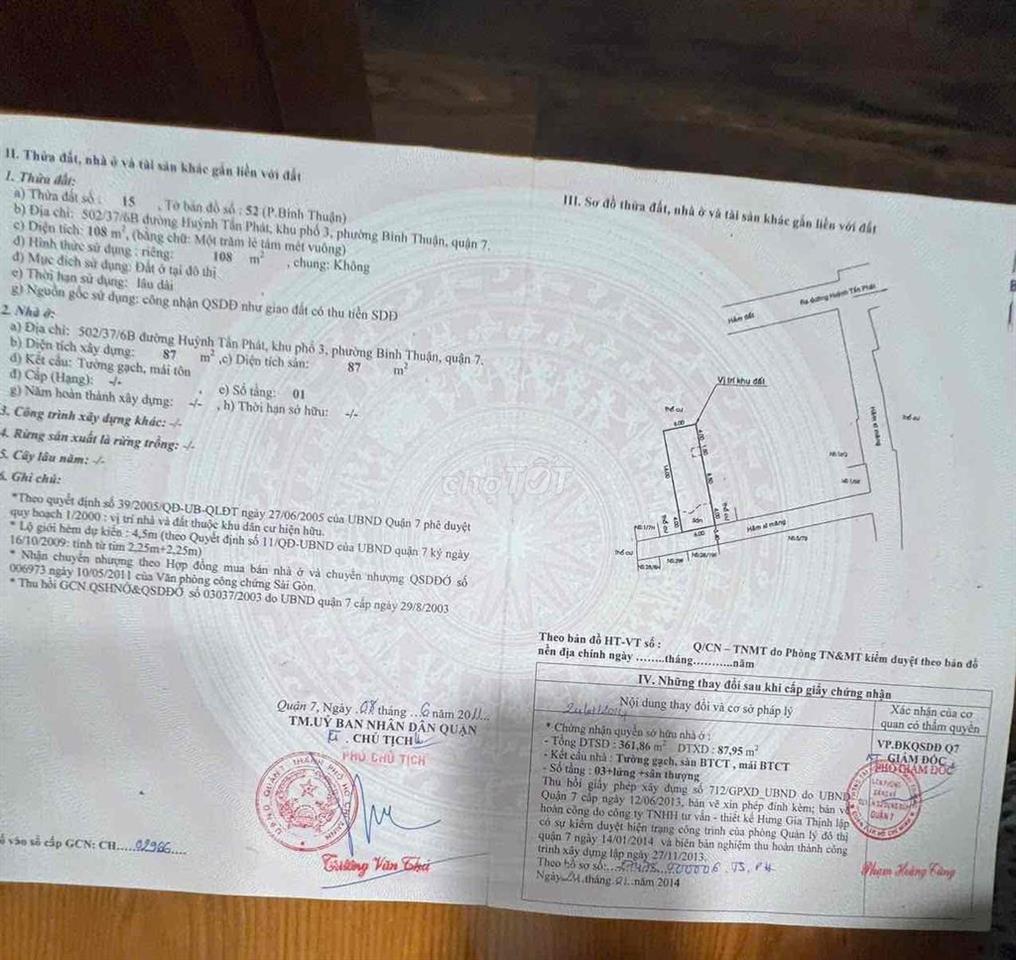 II. Thửa đất, nhà ở và tài sản khác gắn liền với đất
1. Thửa đất:
a) Thửa đất số : 15 , Tờ bản đồ số : 52 (P.Bình Thuận)
b) Địa chỉ: 502/37/6B đường Huỳnh Tấn Phát, khu phố 3, phường Bình Thuận, quận 7.
c) Diện tích: 108 m², (bằng chữ: Một trăm lẻ tám mét vuông)
d) Hình thức sử dụng : riêng: 108 m² , chung: Không
đ) Mục đích sử dụng: Đất ở tại đô thị
e) Thời hạn sử dụng: lâu dài
g) Nguồn gốc sử dụng: công nhận QSDĐ như giao đất có thu tiền SDĐ
2. Nhà ở:
a) Địa chỉ: 502/37/6B đường Huỳnh Tấn Phát, khu phố 3, phường Bình Thuận, quận 7.
b) Diện tích xây dựng: 87 m² ,c) Diện tích sàn: 87 m²
d) Kết cấu: Tường gạch, mái tôn
đ) Cấp (Hạng): -/- e) Số tầng: 01
g) Năm hoàn thành xây dựng: -/- , h) Thời hạn sở hữu: -/-
3. Công trình xây dựng khác: -/-
4. Rừng sản xuất là rừng trồng: -/-
5. Cây lâu năm: -/-
6. Ghi chú:
*Theo quyết định số 39/2005/QĐ-UB-QLĐT ngày 27/06/2005 của UBND Quận 7 phê duyệt
quy hoạch 1/2000 : vị trí nhà và đất thuộc khu dân cư hiện hữu.
* Lộ giới hẻm dự kiến : 4,5m (theo Quyết định số 11/QĐ-UBND của UBND quận 7 ký ngày
16/10/2009: tính từ tim 2,25m+2,25m)
* Nhận chuyển nhượng theo Hợp đồng mua bán nhà ở và chuyển nhượng QSDĐỞ số
006973 ngày 10/05/2011 của Văn phòng công chứng Sài Gòn.
* Thu hồi GCN.QSHNỞ&QSDĐỞ số 03037/2003 do UBND quận 7 cấp ngày 29/8/2003
Quận 7, Ngày .08 tháng ..6 năm 2011...
TM.UỶ BAN NHÂN DÂN QUẬN
CHỦ TỊCH
PHÓ CHỦ TỊCH
Trương Văn Thả
vào sổ cấp GCN: CH.....02966....
III. Sơ đồ thửa đất, nhà ở và tài sản khác gắn liền với đất
Ra đường Huỳnh Tấn Phát
Hẻm đất
Vị trí khu đất
Thổ cư
6.00
4.00
1.50
14.00
8.50
Hẻm xi măng
Thổ cư
Thổ cư
Thổ cư
4.00
4.00
Sân
6.00
Hẻm xi măng
Thổ cư
choTỐT
Theo bản đồ HT-VT số : Q/CN – TNMT do Phòng TN&MT kiểm duyệt theo bản đồ
nền địa chính ngày ........tháng...........năm
IV. Những thay đổi sau khi cấp giấy chứng nhận
Nội dung thay đổi và cơ sở pháp lý
Xác nhận của cơ
quan có thẩm quyền
* Chứng nhận quyền sở hữu nhà ở :
- Tổng DTSD : 361,86 m² DTXD : 87,95 m²
- Kết cấu nhà : Tường gạch, sàn BTCT , mái BTCT
- Số tầng : 03+lửng +sân thượng
Thu hồi giấy phép xây dựng số 712/GPXD_UBND do UBND
Quận 7 cấp ngày 12/06/2013, bản vẽ xin phép đính kèm; bản vẽ
hoàn công do công ty TNHH tư vấn - thiết kế Hưng Gia Thịnh lập
có sự kiểm duyệt hiện trạng công trình của phòng Quản lý đô thị
quận 7 ngày 14/01/2014 và biên bản nghiệm thu hoàn thành công
trình xây dựng lập ngày 27/11/2013.
Theo hồ sơ số
Ngày 21 tháng 01 năm 2014
VP.ĐKQSDĐ Q7
GIÁM ĐỐC
PHÓ GIÁM ĐỐC
QUẬN 7
Phạm Hoàng Tùng